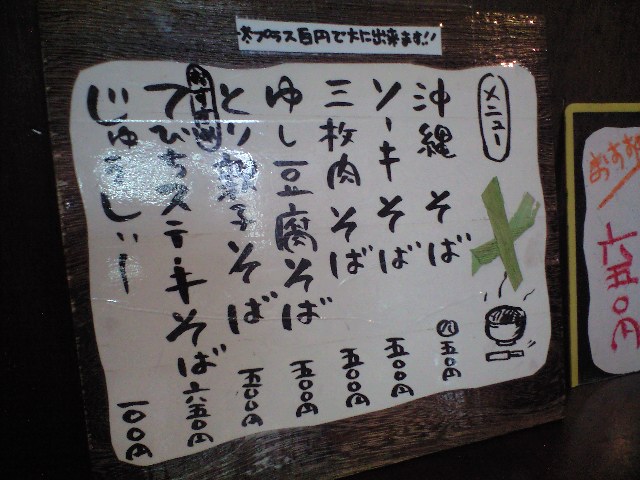 ※プラス百円で大に出来ます!!
メニュー
沖縄そば 五〇円
ソーキそば 五〇〇円
三枚肉そば 五〇〇円
ゆし豆腐そば 五〇〇円
とり親子そば 五〇〇円
おすすめ
てびちステーキそば 六五〇円
じゅうしぃー 一〇〇円
おすす
七五〇円